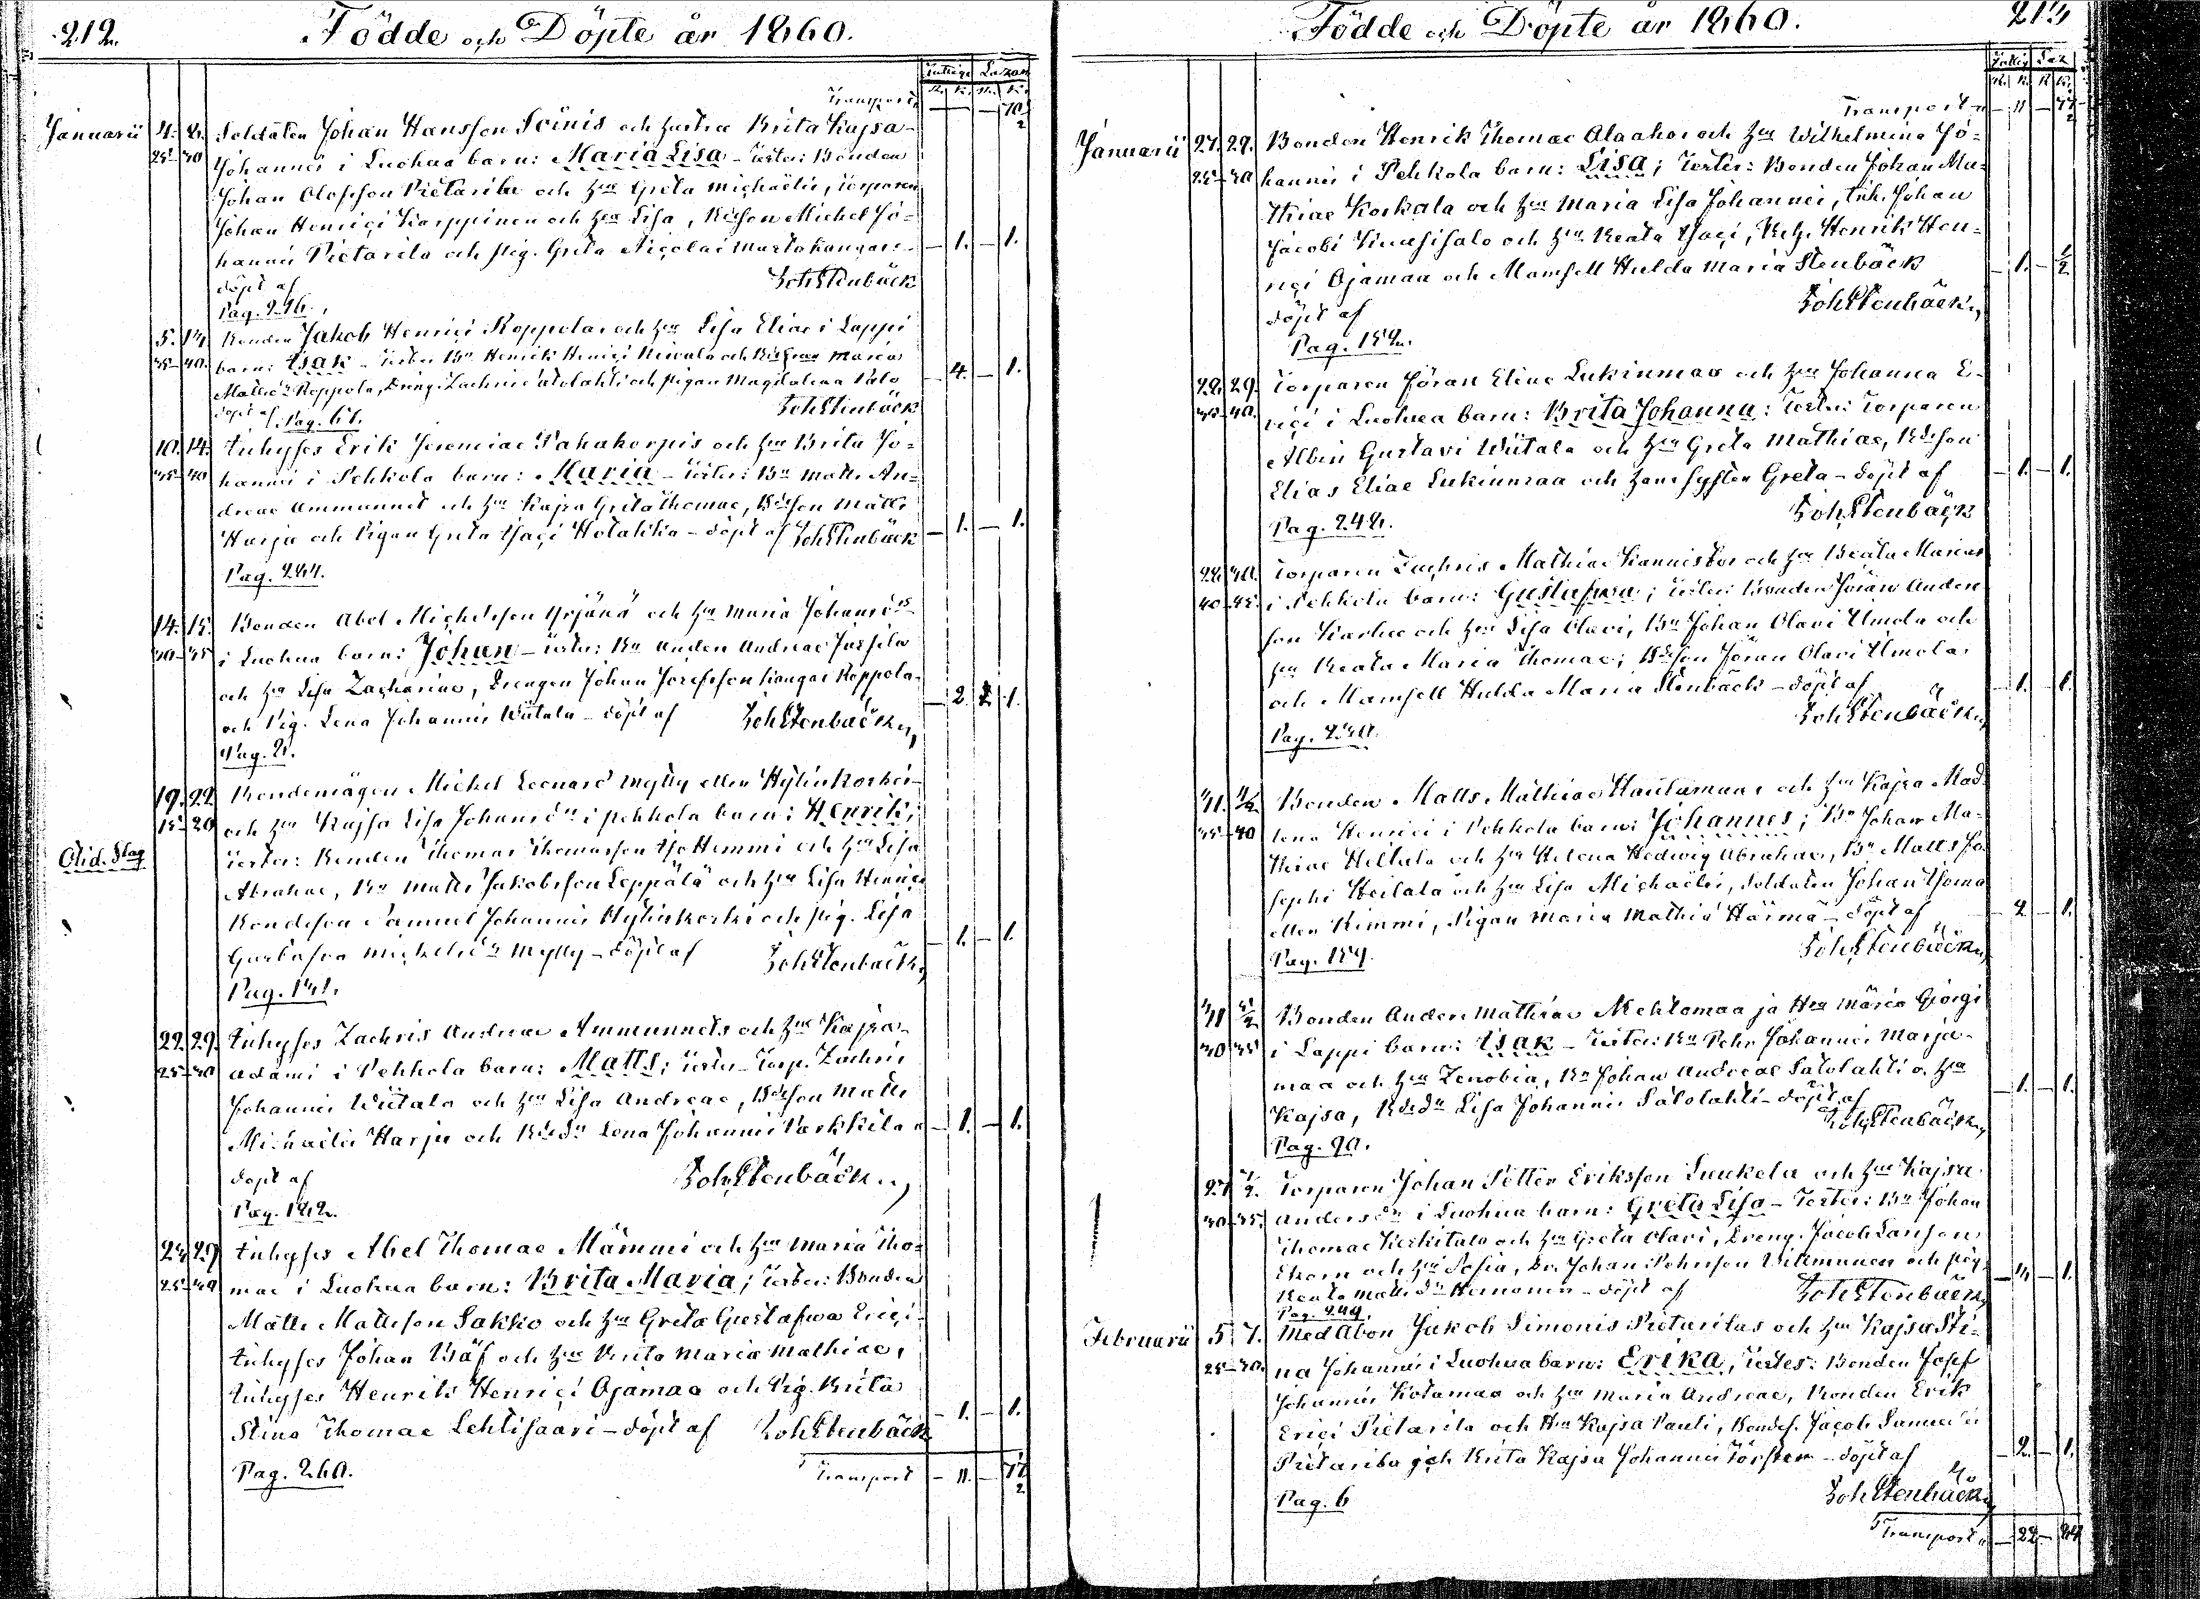 212. Födde och Döpte år 1860.
Inhige Lazar
R. K. R. K.
Transport
Januarii 4. 8. Soldaten Johan Hansson Soinis och hustru Brita Kajsa
25-30 Johannis i Luohua barn: Maria Lisa - Testes: Bonden
Johan Olofsson Pietarila och hru Greta Michaelis, Torparen
Johan Henrici Karppinen och hru Lisa, Bdeson Michel Jo-
hannis Pietarila och pig. Greta Nicolai Mustakangas - 1. - 1.
döpt af Joh Stenbäck
Pag. 216.
5. Bonden Jakob Henrici Roppolas och hru Lisa Eliae i Lappi
35-40. barn: Isak - Testes Bn Henrik Henrici och Maria
Roppola, Dräng. Zachris Satolahti och Pigan Magdalena Palo - 4. - 1.
döpt af Joh Stenbäck
Pag. 61.
10. 14. Inhyses Erik Jeremiae Pahakorpis och hru Brita Jo-
35-40 hannis i Pehkola barn: Maria - Testes: Bn Matts An-
dreae Ammunnet och hru Kajsa Greta Thomae, Bdeson Matts
Harju och Pigan Greta Isaci Hotakka - döpt af Joh Stenbäck - 1. - 1.
Pag. 244.
14. 15. Bonden Abel Michelsson Yrjänä och hru Maria Johansdr
30-35 i Luohua barn: Johan - Testes: Bn Anders Andreae Jussila
och hru Lisa Zachariae, Drengen Johan Josefsson Kangas Roppola
och Pig. Lena Johannis Wiitala - döpt af Joh Stenbäck - 2. 1.
Pag. 2.
19. 22. Bondemågen Michel Leonard Mylly eller Hylinkoski
15-20 och hru Kajsa Lisa Johansdr i Pehkola barn: Henrik;
Testes: Bonden Thomas Thomasson Iso Hemmi och hru Lisa
Abrahae, Bn Matts Jakobsson Leppälä och hru Lisa Henrici
Bondeson Samuel Johannis Hylinkoski och pig. Lisa
Gustafva Mickelsdr Mylly - döpt af Joh Stenbäck - 1. - 1.
Pag. 131.
22. 29. Inhyses Zachris Andreae Ammunnets och hru Kajsa
25-30 Adami i Pehkola barn: Matts; Testes - Torp. Zachris
Johannis Wiitala och hru Lisa Andreae, Bdeson Matts
Michaelis Harju och Bdedr Lena Johannis Parkkila - 1. - 1.
döpt af Joh Stenbäck
Pag. 182.
24. 29. Inhyses Abel Thomae Mämmi och hru Maria Tho-
25-30 mae i Luohua barn: Brita Maria; Testes: Bonden
Matts Mattsson Sakko och hru Greta Gustafva Erici
Inhyses Johan Bäf och hru Brita Maria Mathiae,
Inhyses Henrik Henrici Ojamaa och Pig. Brita
Stina Thomae Lehtisaari - döpt af Joh Stenbäck - 1. - 1.
Pag. 260. Transport - 11. - 77
Födde och Döpte år 1860. 213
R. K. R. K.
Transport - 11 - 77
Januarii 27. 29. Bonden Henrik Thomae Alaahos och hru Wilhelmina Jo-
25-30 hannis i Pehkola barn: Lisa; Testes: Bonden Johan Ma-
thiae Koskala och hru Maria Lisa Johannis, Inh. Johan
Jacobi Kuusisalo och hru Beata Isaci, Henrik Hen-
rici Ojamaa och Mamsell Hulda Maria Stenbäck - 1. - 1/2
döpt af Joh Stenbäck
Pag. 152.
28. 29. Torparen Jöran Eliae Lukinmaa och hru Johanna E-
35-40. rici i Luohua barn: Brita Johanna: Testes: Torparen
Albin Gustavi Wiitala och hru Greta Mathiae, Bdeson
Elias Eliae Lukinmaa och hans Syster Greta - döpt af - 1. - 1.
Joh Stenbäck
Pag. 248.
28. 30. Torparen Zachris Mathiae Kannistos och hru Beata Marias
40-45. i Pehkola barn: Gustafva; Testes: Bonden Jöran Anders
son Karhu och hru Lisa Olavi, Bn Johan Olavi Uimola och
hru Beata Maria Thomae; Bdeson Jöran Olavi Uimola
och Mamsell Hulda Maria Stenbäck - döpt af - 1. - 1.
Joh Stenbäck
Bonden Matts Mathiae Hautamaa och hru Kajsa Mad-
35-40 lena Henrici i Pehkola barn: Johannes; Bn Johan Ma-
thiae Heltula och hru Helena Hedwig Abrahae, Bn Matts Jo
sephi Heilala och hru Lisa Michaelis, Soldaten Johan Thoma
eller Kimmi, Pigan Maria Mathiae Härmä - döpt af - 2 - 1.
Joh Stenbäck
Pag. 159.
Bonden Anders Mathiae Mehtomaa ja Hru Maria Giorgi
30-35 i Lappi barn: Isak - Testes: Bn Pehr Johannis Marja-
maa och hru Zenobia, Bn Johan Andreae Satolahti o. hru
Kajsa, Bdedr Lisa Johannis Satolahti - döpt af - 1. - 1.
Joh Stenbäck
Pag. 90.
27. Torparen Johan Petter Eriksson Luukela och hru Kajsa
30-35. Andersdr i Luohua barn: Greta Lisa - Testes: Bn Johan
Thomae Keskitalo och hru Greta Olavi, Dreng. Jacob Larsson
Ekorn och hru Sofia, Dr. Johan Pehrsson Wilkmunen och pig.
Beata Mattsdr Hemonen - döpt af Joh Stenbäck
Pag. 249.
Februarii 5 7. Med Åbon Jakob Simonis Pietarilas och hru Kajsa Sti-
25-30. na Johannis i Luohua barn: Erika, Testes: Bonden Josef
Johannis Kotamaa och hru Maria Andreae, Bonden Erik
Erici Pietarila och Hru Kajsa Pauli, Bondes. Jacob Samuelis
Pietarila och Brita Kajsa Johannis Törsten - döpt af - 2. - 1.
Joh Stenbäck
Pag. 6
Transport - 22 -